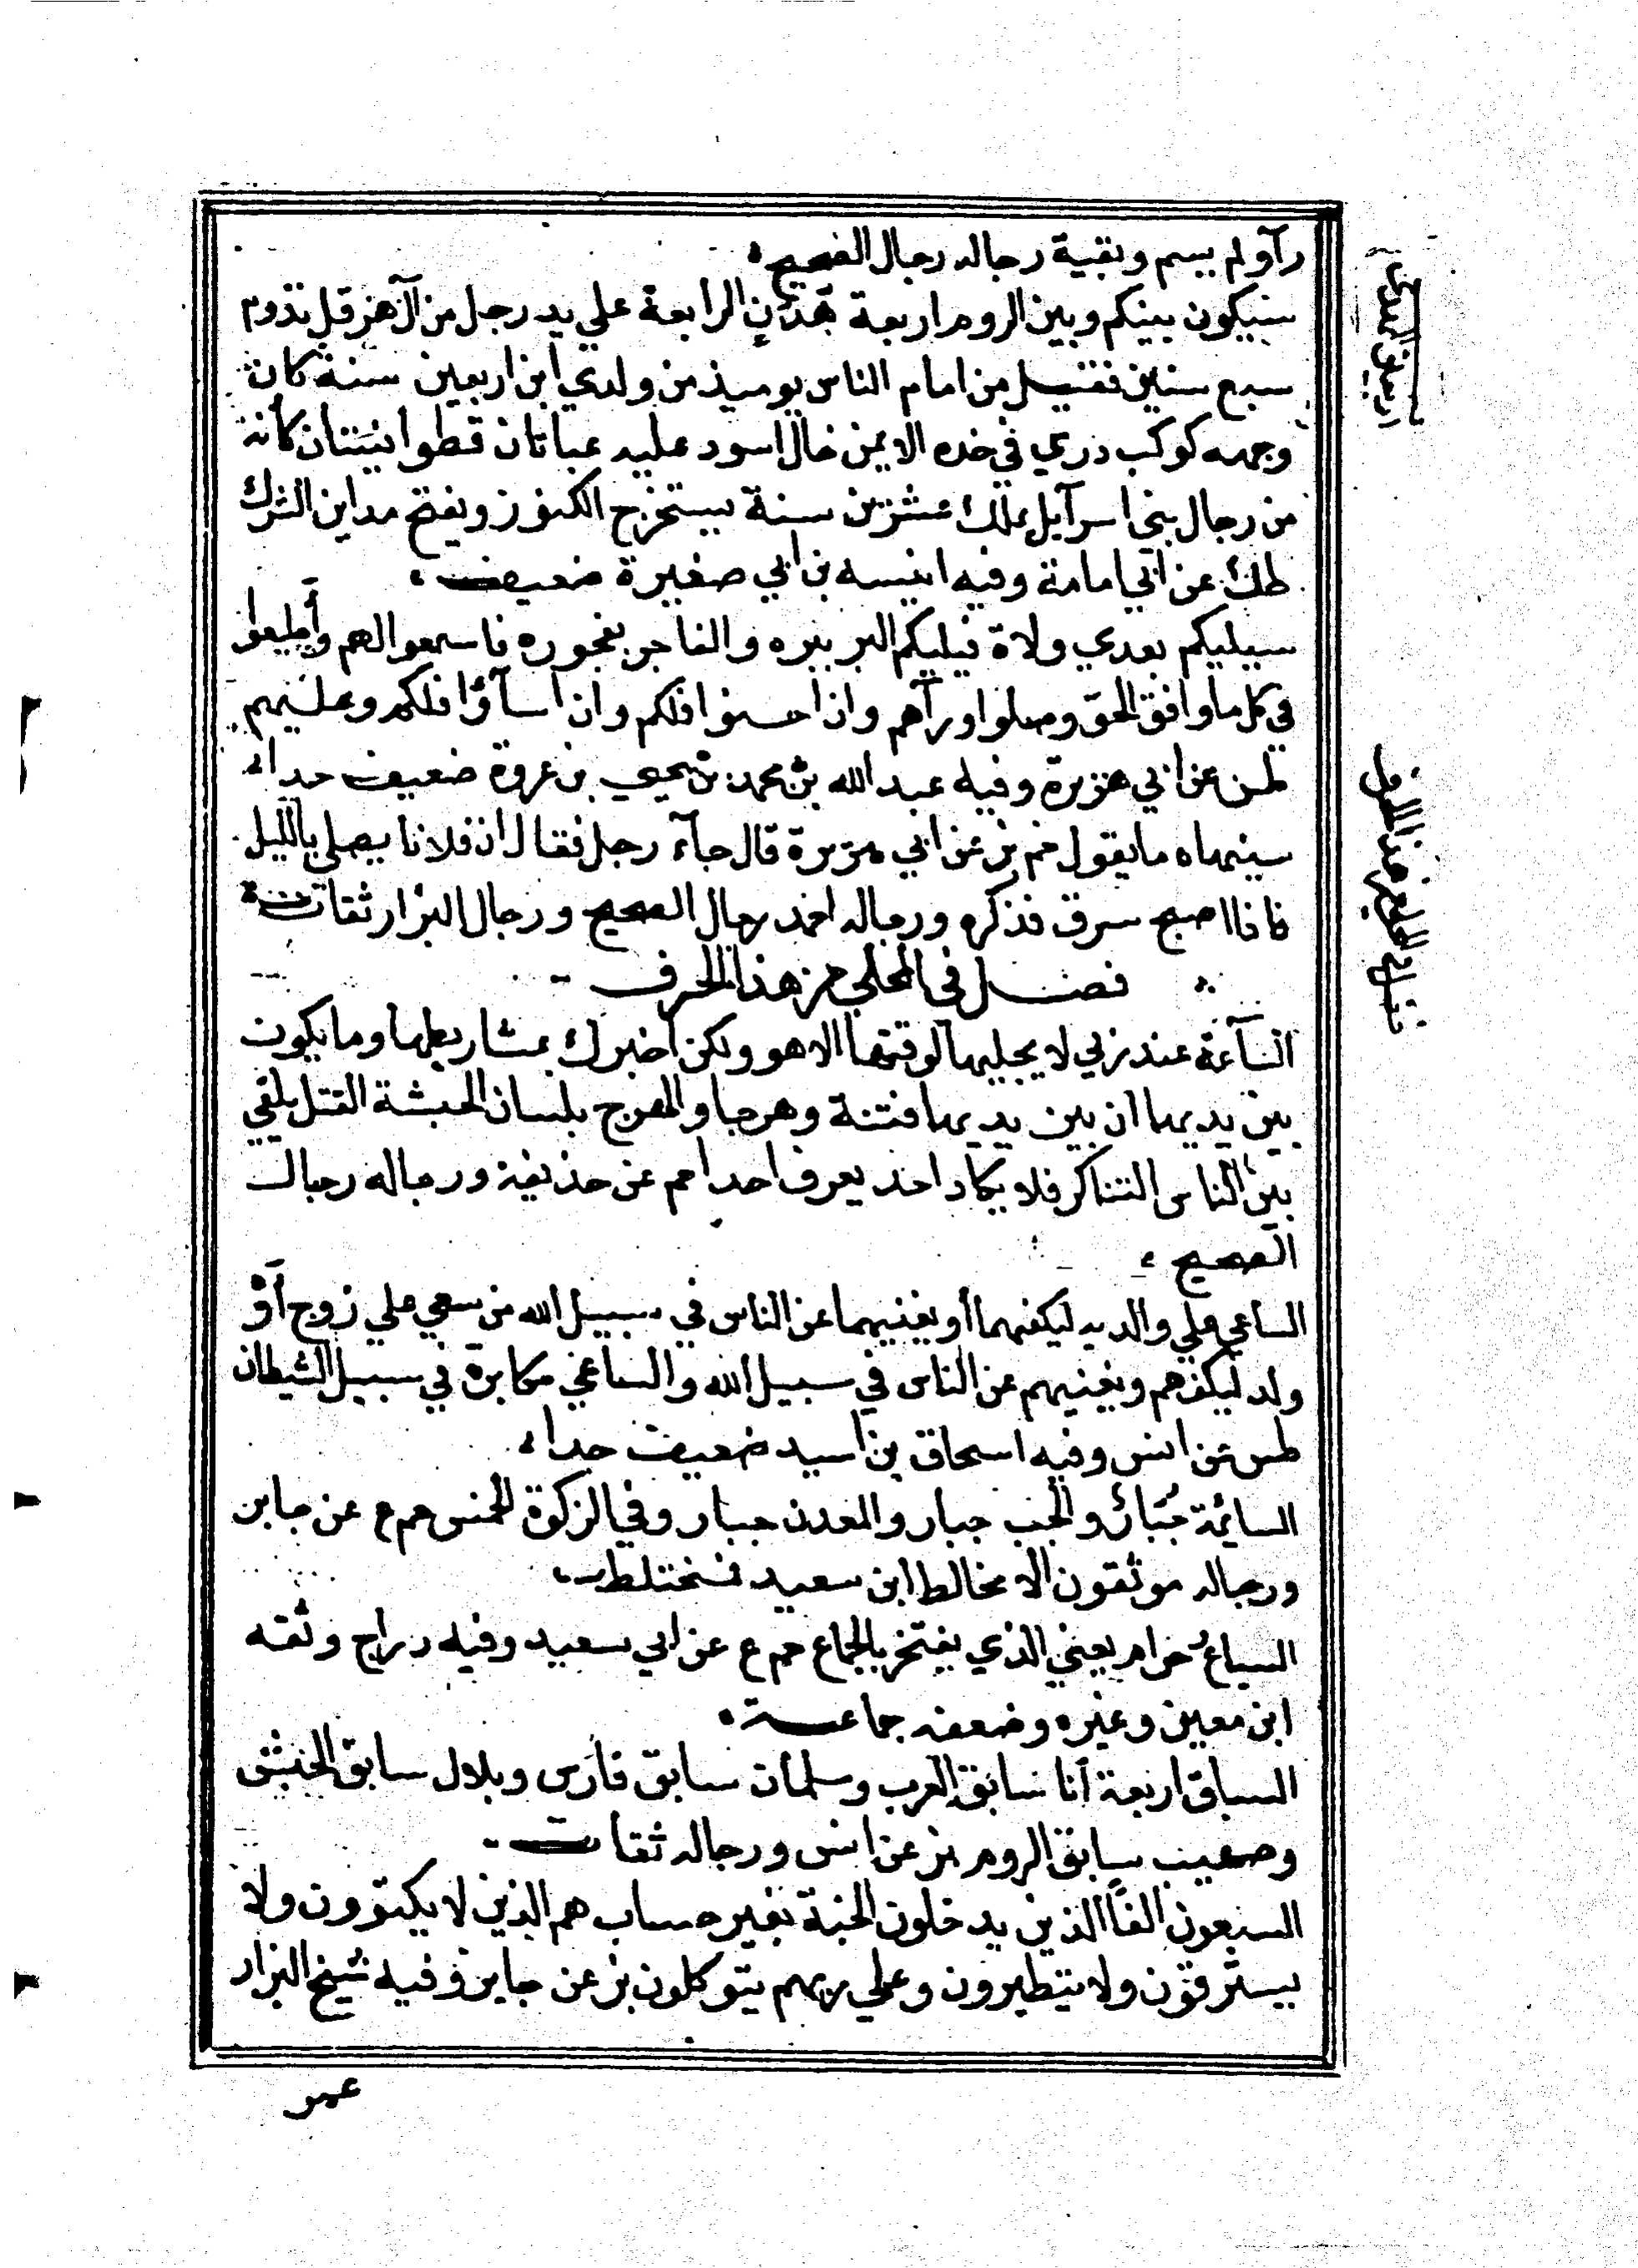 رآو لم يسم وبقية رجاله رجال الصحيح
سيكون بينكم وبين الروم اربعة هدن الرابعة علي يد رجل من آل هرقل تدوم
سبع سنين فقيل من امام الناس يوميذ من ولدي ابن اربعين سنة كان
وجهه كوكب دري في خده الايمن خال اسود عليه عباتان قطوانيتان كأنه
من رجال بني اسرآيل يملك عشرين سنة يستخرج الكنوز ويفتح مداين الشرك
طك عن ابي امامة وفيه انيسه بن ابي صغيرة ضعيف
سيليكم بعدي ولاة فيليكم البر ببره والفاجر بفجوره فاسمعوا لهم وأطيعوا
في كل ما وافق الحق وصلوا ورآهم وان احسنوا فلكم وان اسآؤا فلكم وعليهم
طس عن ابي هريرة وفيه عبد الله بن محمد بن يحيي بن عروة ضعيف جدا
سينهاه ما يقول حم بز عن ابي هريرة قال جآء رجل فقال ان فلانا يصلي بالليل
فاذا اصبح سرق فذكره ورجاله احمد رجال الصحيح ورجال البزار ثقات
فصل في المحلي من هذا الحرف
الساعة عند ربي لا يجليها لوقتها الا هو ولكن اخبرك بمشاريطها وما يكون
بين يديها ان بين يديها فتنة وهرجا والهرج بلسان الحبشة القتل يلقي
بين الناس التناكر فلا يكاد احد يعرف احدا حم عن حذيفة ورجاله رجال
الصحيح
الساعي علي والديه ليكفهما أو يغنيهما عن الناس في سبيل الله من سعي علي زوج أو
ولد ليكفهم ويغنيهم عن الناس في سبيل الله والساعي مكابرة في سبيل الشيطان
طس عن انس وفيه اسحاق بن اسيد ضعيف جدا
السائمة جُبَارٌ والجب جبار والمعدن جبار وفي الزكوة الخمس حم ع عن جابر
ورجاله موثقون الا مخالط ابن سعيد فمختلط
السباعُ حرام يعني الذي يفتخر بالجماع حم ع عن ابي سعيد وفيه دراج وثقه
ابن معين وغيره وضعفه جماعة
السباق اربعة أنا سابق العرب وسلمان سابق فارس وبلال سابق الحبش
وصهيب سابق الروم بز عن انس ورجاله ثقات
السبعون الفًا الذين يدخلون الجنة بغير حساب هم الذين لا يكتوون ولا
يسترقون ولا يتطيرون وعلي ربهم يتوكلون بز عن جابر وفيه شيخ البزار
عمر